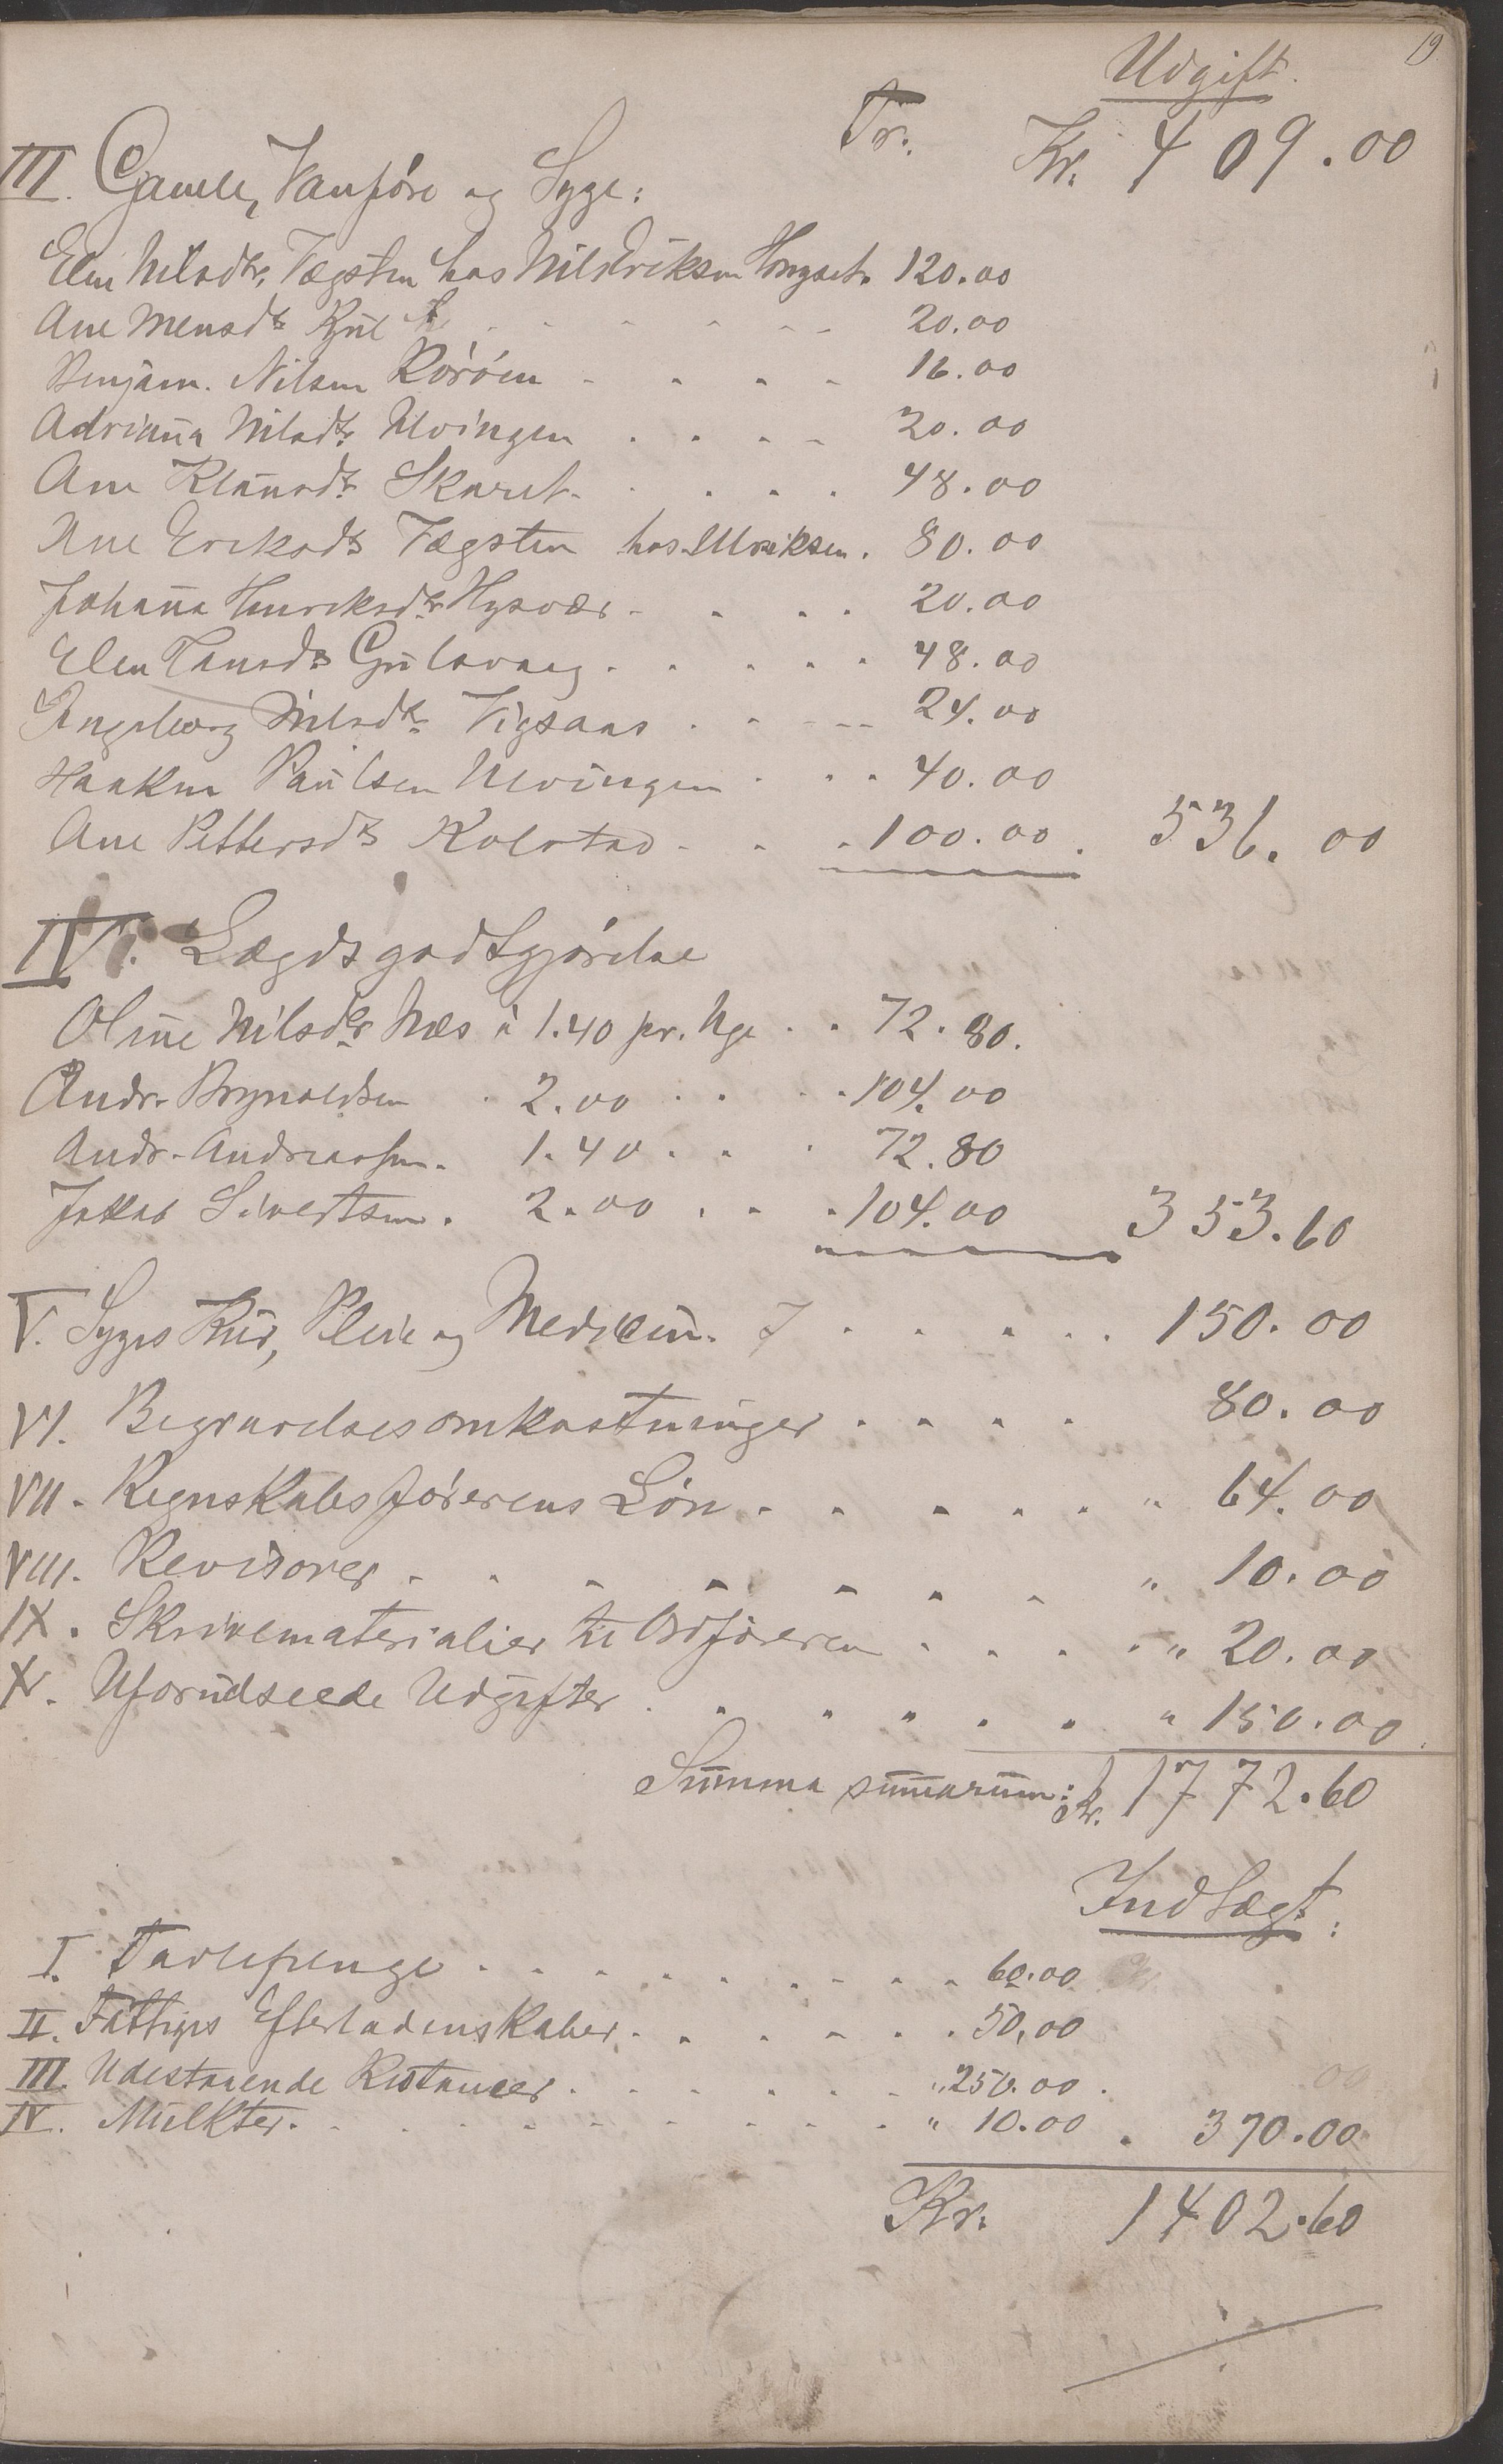 19
Udgift.
Tr. Kr. 409.00
III. Gamle, Vanføre og Syge:
Elen Nilsdtr. Tægsten hos Nils Eriksen Hongset. 120.00
Ane Mensdtr 20.00
Benjam. Nilsen Rørøen - - - - 16.00
Adrianna Nilsdtr. Ulvingen . . - - 20.00
Ane Klausdtr. Skaret. . . . . 48.00
Ane Eriksdtr Tægsten hos Ulriksen. 80.00
Johanna Henriksdtr. Hysvær - - . . 20.00
Elen Hansdtr . . . . . 48.00
Ingeborg Nilsdtr. Vigsaas . - - - 24.00
Haakon Paulsen Ulvingen . . . 40.00
Ane Pettersdtr Kolstad - - . 100.00. 536.00
IV. Lægdsgodtgjørelse
Oline Nilsdtr. Næs à 1.40 pr. Uge . . 72.80.
Andr. Brynoldsen . 2.00 . . . 104.00
Andr. Andreassen. 1.40 . . . 72.80
Jakob Sivertsen. 2.00 . . . 104.00 353.60
V. Syges Kur, Pleie og Medicin. . . . . . 150.00
VI. Begravelsesomkostninger . . . . 80.00
VII. Regnskabsførerens Løn . . . . . " 64.00
VIII. Revisorer . . . . . . . " 10.00
IX. Skrivematerialier til Ordføreren . . . . " 20.00
X. Uforudseede Udgifter . . . . . . " 150.00
Summa summarum: Kr. 1772.60
Indtægt:
I. Tavlepenge . . . . . . . . . 60.00
II. Fattiges Efterladenskaber . . . . . . 50,00
III. Udestaaende Restancer . . . . . . " 250.00 .
IV. Mulkter . . . . . . . . . " 10.00 . 370.00
Kr. 1402.60